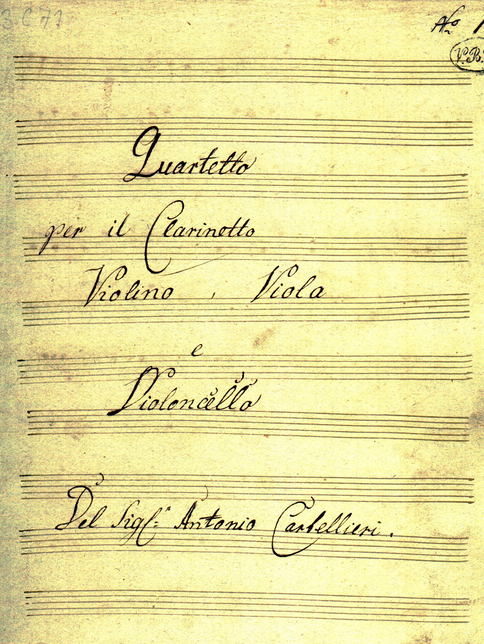 3677
No 1
V.B.
Quartetto
per il Clarinetto
Violino, Viola
e
Violoncello
Del Sigr: Antonio Cartellieri.